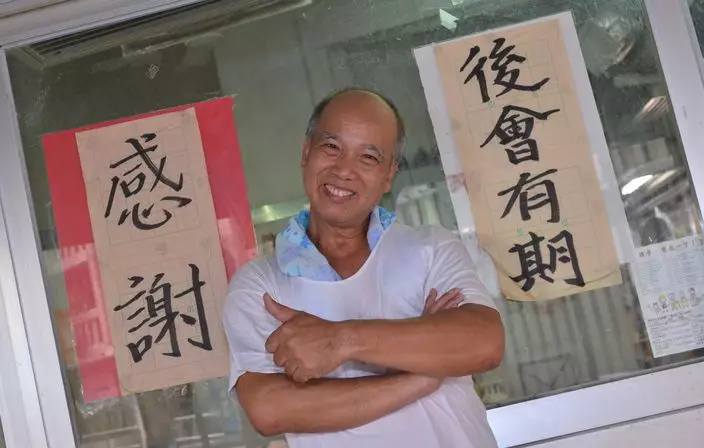 感謝
後會有期